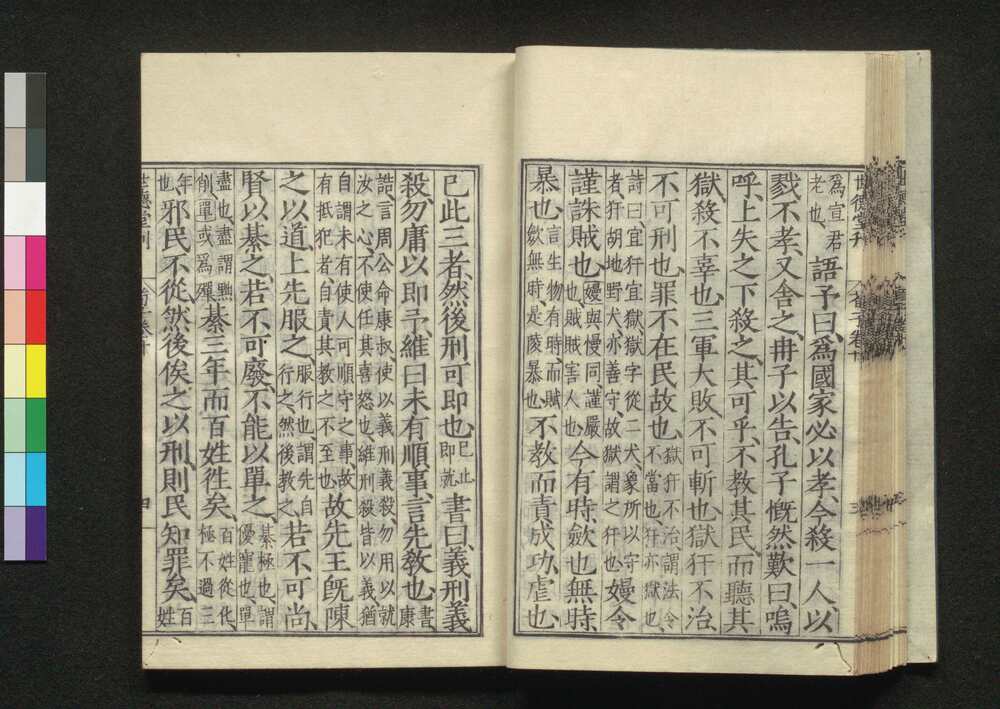 世德堂刊
爲宣君
老也
語予曰、爲國家必以孝、今殺一人以
戮不孝、又舍之、冉子以告、孔子慨然歎曰、嗚
呼、上失之、下殺之、其可乎、不教其民而聽其
獄、殺不辜也、三軍大敗、不可斬也、獄犴不治
不可刑也、罪不在民故也、
獄犴不治謂法令
不當也犴亦獄也
詩曰宜犴宜獄獄字從二犬象所以守
者犴胡地野犬亦善守故獄謂之犴也
嫚令
謹誅賊也、
嫚與慢同謹嚴
也賊賊害人也
今有時斂也無時
暴也、
言生物有時而賦
斂無時是陵暴也
不教而責成功、虐也、
已此三者、然後刑可即也、
已止
即就
書曰、義刑義
殺、勿庸以即予、維曰未有順事、言先教也、
書
康
誥言周公命康叔使以義刑義殺勿用以就
汝之心不使任其喜怒也維刑殺皆以義猶
自謂未有使人可順守之事故
有抵犯者自責其教之不至也
故先王既陳
之以道、上先服之、
服行也謂先自
行之然後教之
若不可、尚
賢以綦之、若不可、廢不能以單之、
綦極也謂
優寵也單
盡也盡謂黜
削單或爲殫
綦三年而百姓往矣、
百姓從化
極不過三
年
也
邪民不從、然後俟之以刑、則民知罪矣、
百
姓
世德堂刊
四